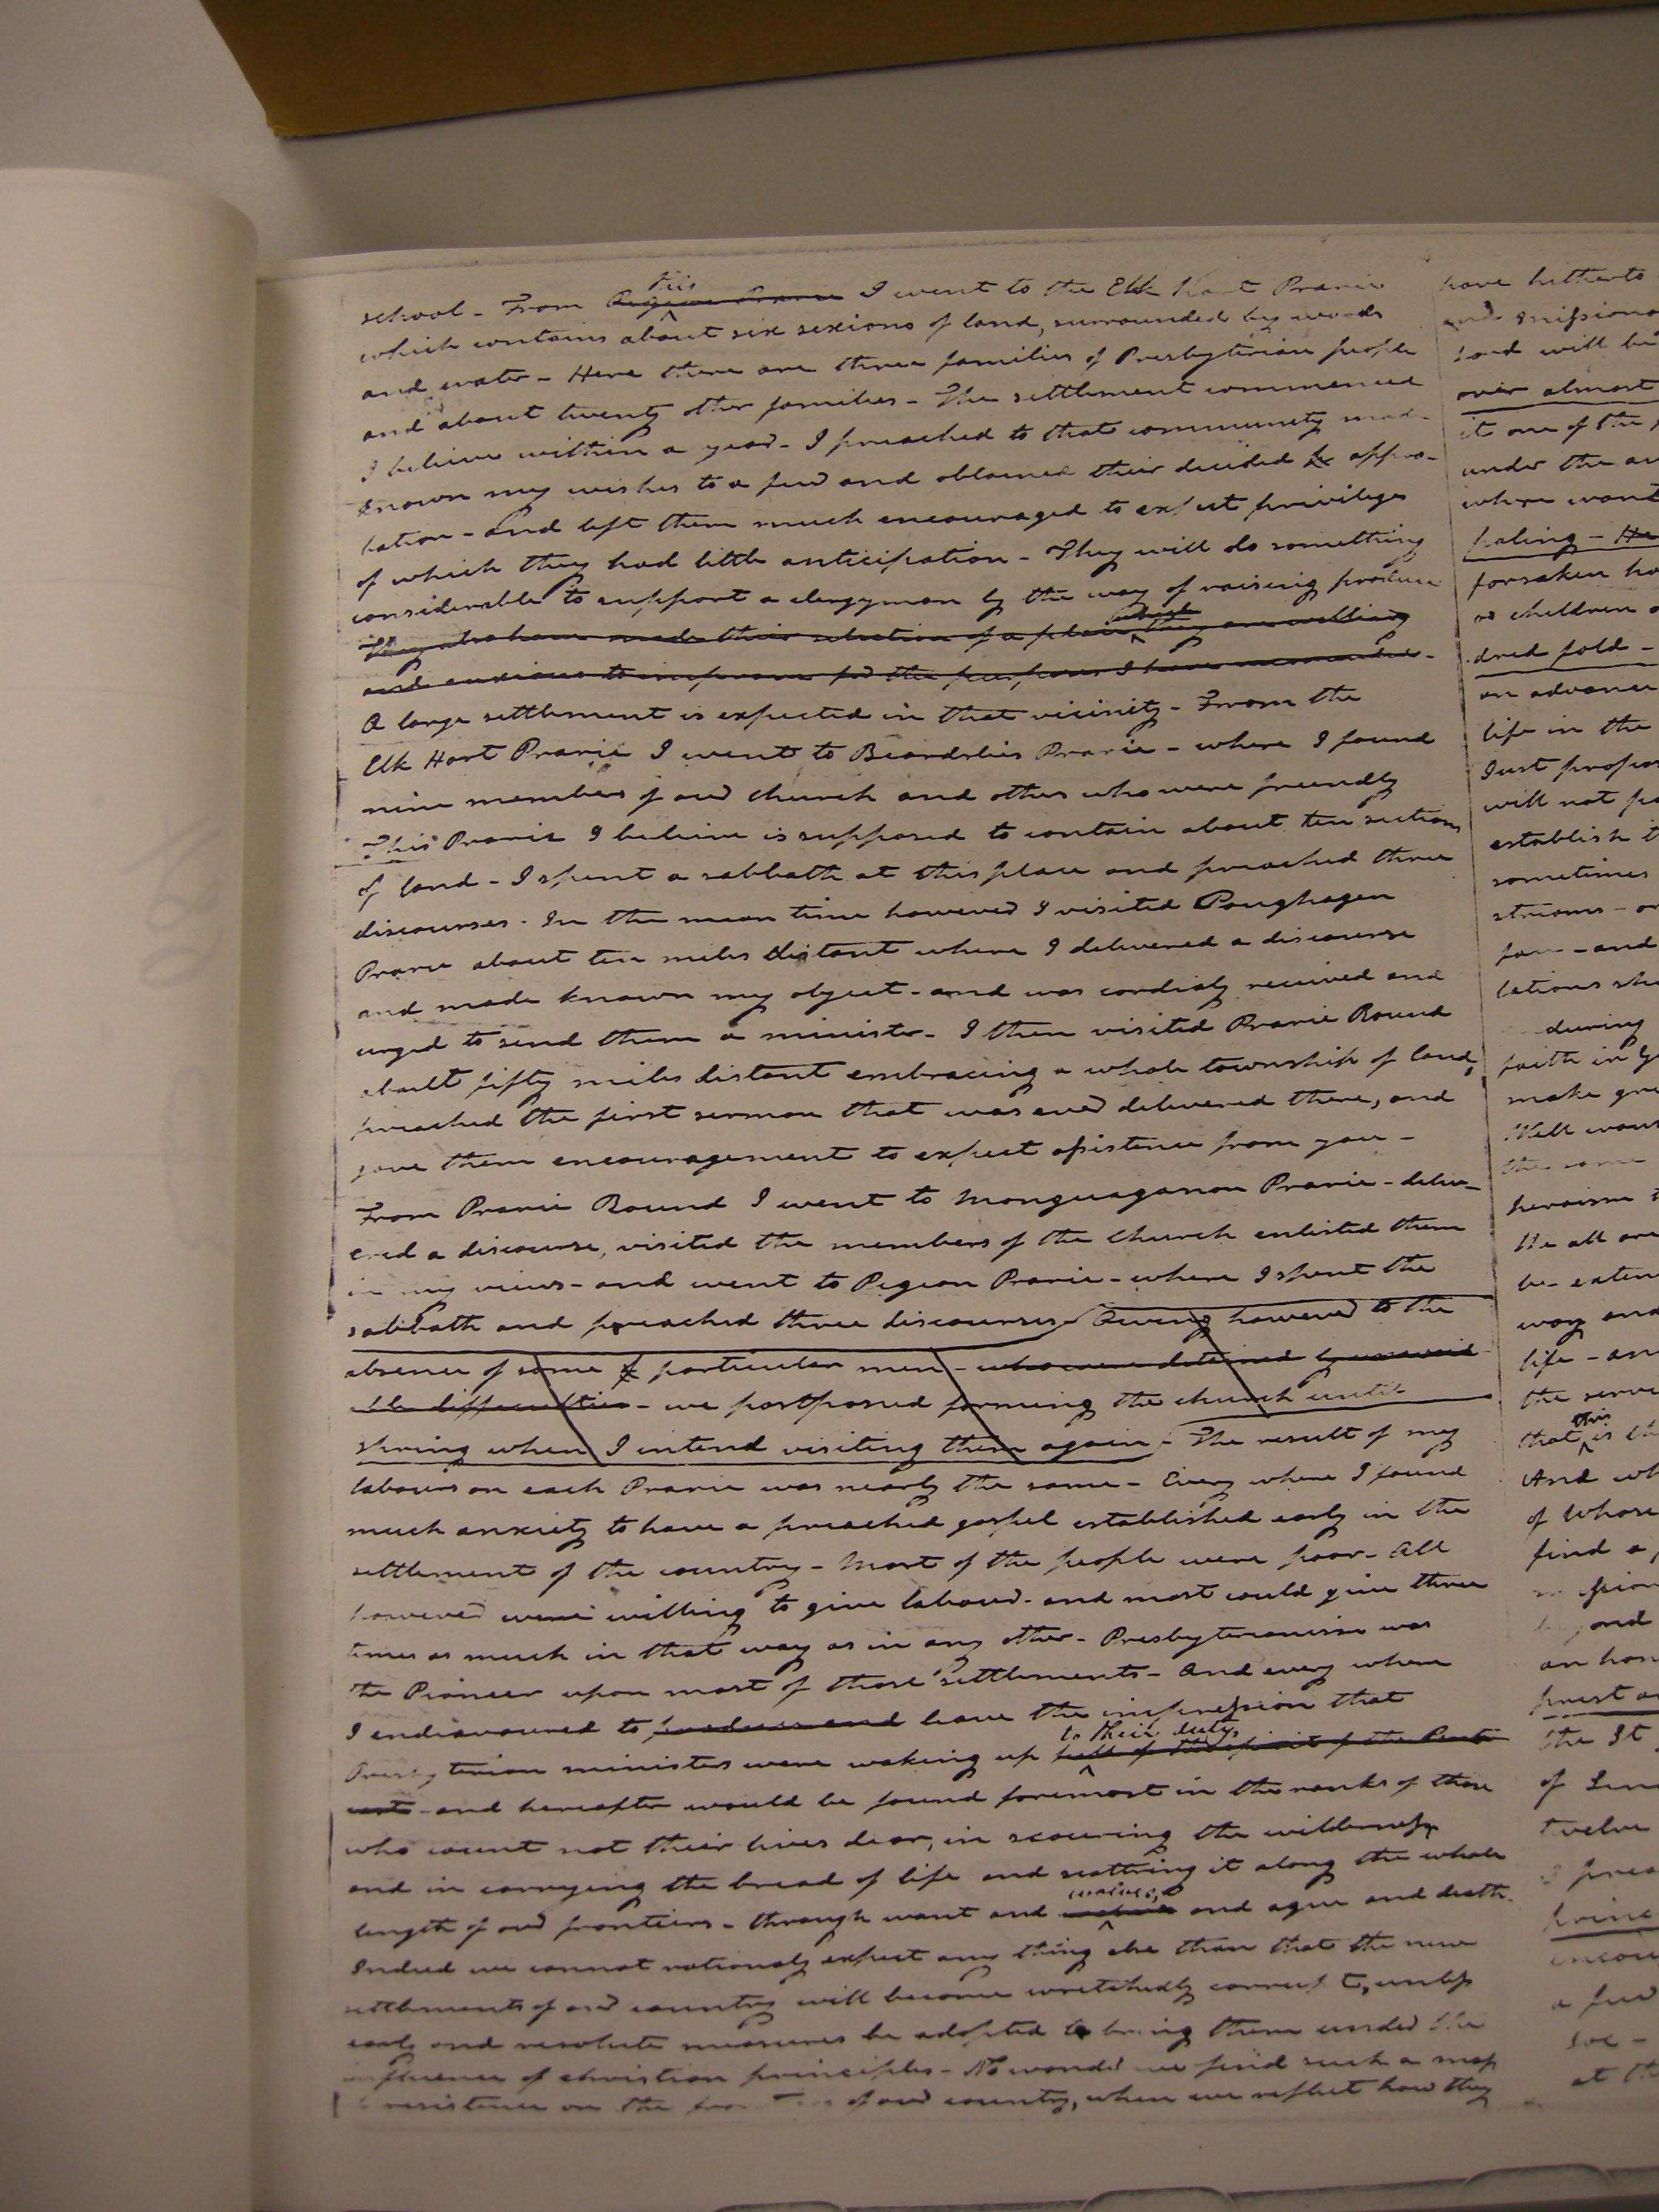 school - From this Pigeon Prarie I went to the Elk Hart Prarie
which contains about six sexions of land, surrounded by woods
and water - Here there are three families of Presbyterian people
and about twenty other families - The settlement commenced
I believe within a year - I preached to that community made
known my wishes to a few and obtained their decided appro-
bation - and left them much encouraged to expect privileges
of which they had little anticipation - They will do something
considerable to support a clergyman by the way of raising produce
They also have made their selection of a place which they are willing
and anxious to improve for the purposes I have
A large settlement is expected in that vicinity - From the
Elk Hart Prarie I went to Beardslies Prarie - where I found
nine members of our church and others who were friendly
This Prarie I believe is supposed to contain about ten sections
of land - I spent a sabbath at this place and preached three
discourses - In the mean time however I visited Poughagen
Prarie about ten miles distant where I delivered a discourse
and made known my object - and was cordialy received and
urged to send them a minister - I then visited Prarie Round
about fifty miles distant embracing a whole township of land,
preached the first sermon that was ever delivered there, and
gave them encouragement to expect assistence from you -
From Prarie Round I went to Monguaganon Prarie - deliv-
ered a discourse, visited the members of the church enlisted them
in my views - and went to Pigeon Prarie - where I spent the
sabbath and preached three discourses - Owing however to the
absence of some particular men - who were detained by unavoid-
able difficulties - we postponed forming the church until
spring when I intend visiting them again - The result of my
labours on each Prarie was nearly the same - Every where I found
much anxiety to have a preached gospel established early in the
settlement of the country - Most of the people were poor - All
however were willing to give labour - and most could give three
times as much in that way as in any other - Presbyterianism was
the Pioneer upon most of those settlements - And every where
I endeavoured to produce and leave the impression that
to their duty
Presbyterian ministers were waking up full of the spirit of the
and hereafter would be found foremost in the ranks of those
who count not their lives dear, in scouring the wilderness
and in carrying the bread of life and scattring it along the whole
wolves,
length of our frontiers - through want and and ague and death -
Indeed we cannot rationaly expect any thing else than that the new
settlements of our country will become wretchedly corrupt, unless
early and resolute measures be adopted to bring them under the
influence of christian principles - No wonder we find such a mass
resistence on the frontiers of our country, when we reflect how they
have hitherto
and missiona
Lord will be
over almost
it one of the
under the au
where want
forsaken ho
or children o
dred fold -
an advance
life in the
Just propor
will not pa
establish t
sometimes
streams - or
- and
lations sh
during
faith in
make gre
Well wou
the same
heroism t
We all are
be exten
way and
life - an
the serve
that this is th
And wh
of whose
find a
an hon
priest or
the St
of
twelve
I prea
princ
a few
at th